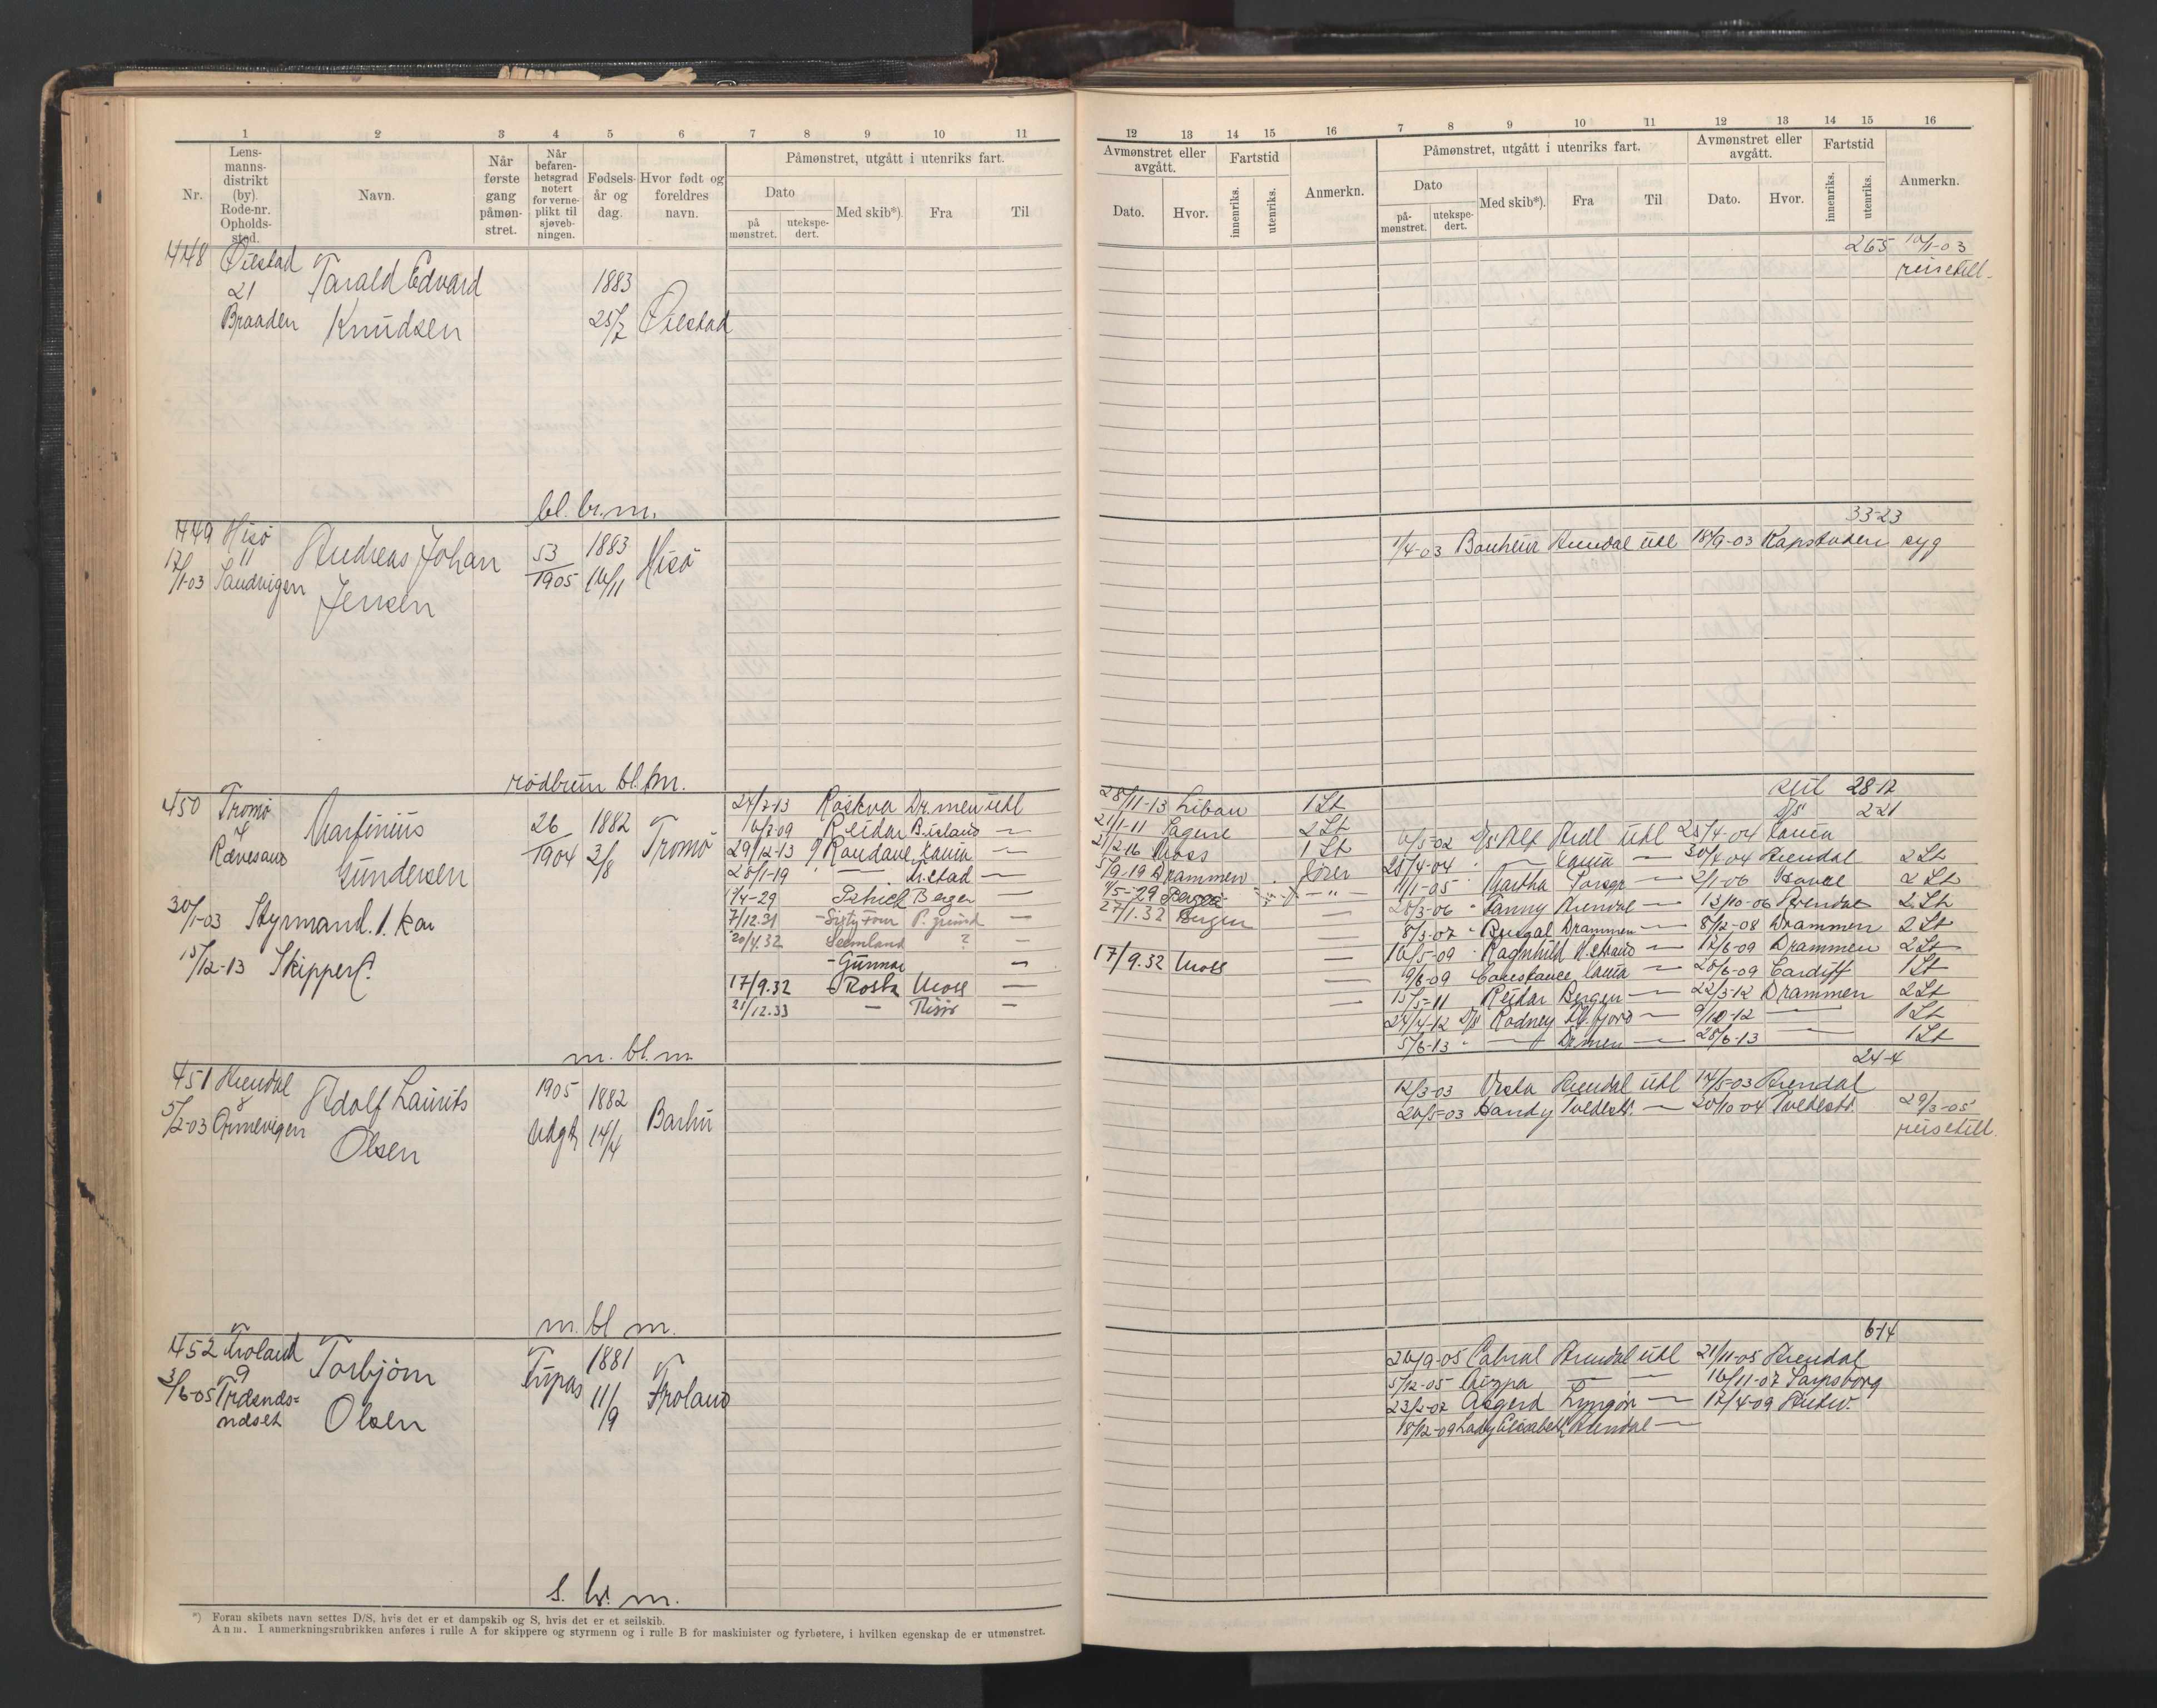 1 2 3 4 5 6 7 8 9 10 11
Nr. Lens-manns-distrikt (by). Rode-nr. Opholds-sted. Navn. Når første gang påmøn-stret. Når befaren-hetsgrad notert for verne-plikt til sjøveb-ningen. Fødsels-år og dag. Hvor født og foreldres navn. Påmønstret, utgått i utenriks fart.
Dato Med skib*). Fra Til
på mønstret. utekspe-dert.
12 13 14 15 16 7 8 9 10 11 12 13 14 15 16
Avmønstret eller avgått. Fartstid Anmerkn. Påmønstret, utgått i utenriks fart. Avmønstret eller avgått. Fartstid Anmerkn.
Dato. Hvor. innenriks. utenriks. Dato Med skib*). Fra Til Dato. Hvor. innenriks. utenriks.
på-mønstret. utekspe-dert.
448 Øiestad Tarald Edvard 1883
21
Braaden Knudsen 25/7 Øiestad
265 10/1-03
reisetill.
bl. br. m.
449 Hisø Andreas Johan 53 1883 Hisø
17/1-03 11 1905 16/11
Sandvigen Jensen
33-23
1/4-03 Arendal utl 18/9-03 Kapstaden syg
rødbrun bl. m.
450 Tromø Martinius 26 1882 Tromø
Rævesand Gundersen 1904 3/8
30/1-03 Styrmand. 1. kar
15/12-13 Skipper
24/7-13 Røskva Dr.men utl
16/2-09 Reidar —
29/12-13 Randane —
28/1-19 — —
1/4-29 Bergen —
7/12.31 - Sixty Four P. grund —
20/4.32 ? —
- Gunnar —
17/9.32 Rosta Moss —
21/12.33 — Risør —
28/11-13 Libau 1 St
21/1-11 2 St
21/2-16 Moss 1 St
5/9-19 Drammen fører
1/5-29 Bergen -"-
27/1.32 Bergen —
17/9.32 Moss —
seil 28-12
D/S 2-21
6/5-02 D/S Alf Ardl utl 25/4-04
25/4-04 " — — 30/4-04 Arendal 2 St
11/1-05 " Martha — 2/1-06 2 St
28/3-06 " Fanny Arendal — 13/10-06 Arendal 2 St
8/3-07 " Drammen — 8/12-08 Drammen 2 St
16/5-09 " Ragnhild — 12/6-09 Drammen 2 St
19/6-09 Constance — 28/6-09 Cardiff 1 St
15/5-11 Reidar Bergen — 22/3-12 Drammen 2 St
24/4-12 D/S Rodney — 9/10-12 — 1 St
5/6-13 " — Drmen — 28/6-13 — 1 St
m. bl. m
451 Arendal Adolf Laurits 1905 1882
8
5/2-03 Ormevigen Olsen Udgt 14/4 Barbu
24-4
12/3-03 Vesta Arendal utl 14/5-03 Arendal
26/5-03 Handy Tvedestr. — 20/10-04 Tvedestr. 29/3-05
reisetill.
m. bl m.
452 Froland Torbjørn 1881
9
3/6-05 Olsen 11/9 Froland
6-14
26/9-05 Cabral Arendal utl 21/11-05 Arendal
5/12-05 — — 16/11-07 Sarpsborg
23/2-07 Asgerd Lyngør — 17/4-09 Antw.
18/12-09 Lady Elisabeth Arendal —
s. br. m.
*) Foran skibets navn settes D/S, hvis det er et dampskib og S, hvis det er et seilskib.
Anm. I anmerkningsrubrikken anføres i rulle A for skippere og styrmenn og i rulle B for maskinister og fyrbøtere, i hvilken egenskap de er utmønstret.